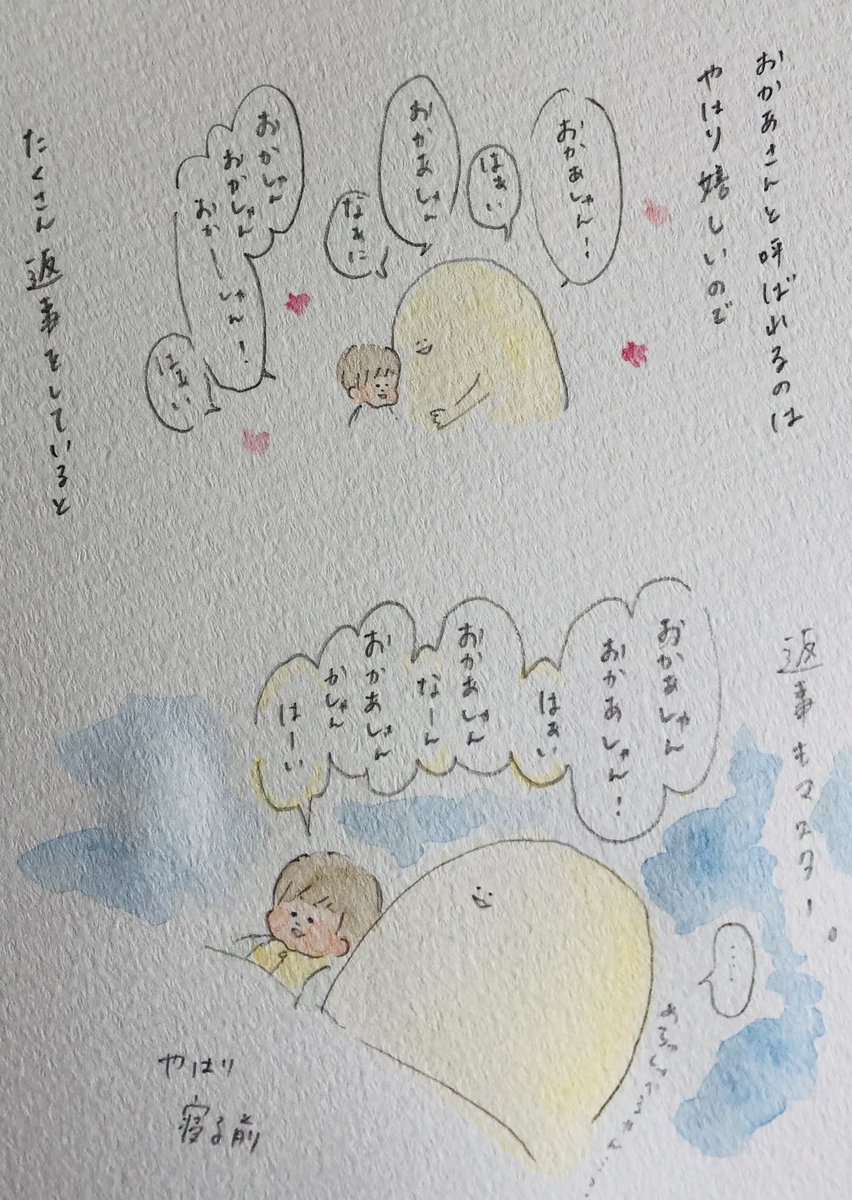 おかあさんと呼ばれるのは
やはり嬉しいので
おかあしゃん！
はぁい
おかあしゃん
なぁに
おかしゃん
おかしゃん
おかーしゃん！
はぁい
たくさん返事をしていると
返事もマスター。
おかあしゃん
おかあしゃん！
はぁい
おかあしゃん
なーん
おかあしゃん
かしゃん
はーい
……
やはり
寝る前